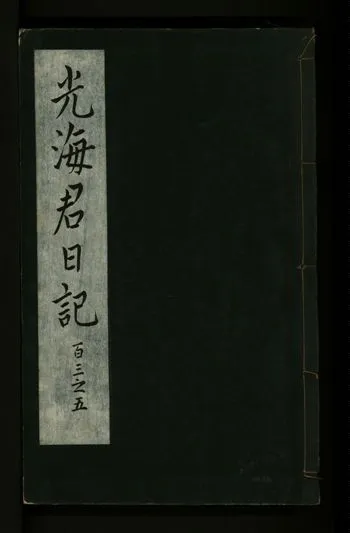 光海君日記
百三之五